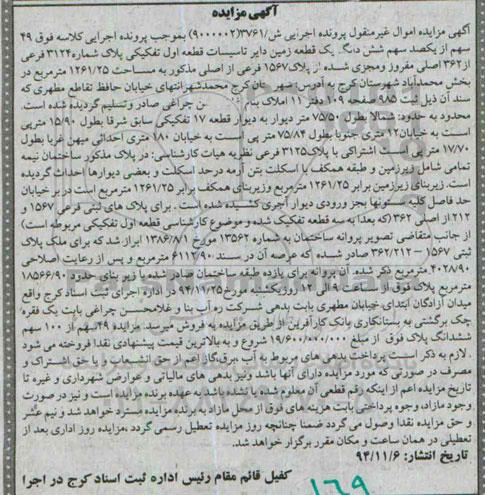 آگهی مزایده
آگهی مزایده اموال غیرمنقول پرونده اجرایی ش/۳۷۶۱(۹۰۰۰۰۰۲) بموجب پرونده اجرایی کلاسه فوق ۴۹
سهم از یکصد سهم شش دانگ یک قطعه زمین دایر تاسیسات قطعه اول تفکیکی پلاک شماره ۳۱۲۴ فرعی
از ۳۶۲ اصلی مفروز ومجزی شده از پلاک ۱۵۶۷ فرعی از اصلی مذکور به مساحت ۱۲۶۱/۲۵ مترمربع در
بخش محمدآباد شهرستان کرج به آدرس: شهرستان کرج محمدشهر انتهای خیابان حافظ تقاطع مطهری که
سند آن ذیل ثبت ۹۸۵ صفحه ۱۰۹ دفتر ۱۱ املاک بنام چراغی صادر وتسلیم گردیده شده است.
محدود به حدود: شمالا بطول ۷۵/۵۰ متر دیوار به دیوار قطعه ۱۷ تفکیکی سابق شرقا بطول ۱۵/۹۰ متر پی
است به خیابان ۱۲ متری جنوبا بطول ۷۵/۸۴ متر پی است به خیابان ۱۸۰ متری احداثی میهن غربا بطول
۱۷/۷۰ متر پی است اشتراکی با پلاک ۳۱۲۵ فرعی نظریه هیات کارشناسی: در پلاک مذکور ساختمان نیمه
تمامی شامل زیرزمین و طبقه همکف با اسکلت بتن آرمه درحد اسکلت و بعضی دیوارها احداث گردیده
است. زیربنای زیرزمین برابر ۱۲۶۱/۲۵ مترمربع وزیربنای همکف برابر ۱۲۶۱/۲۵ مترمربع است در بر خیابان
حد فاصل کلیه ستونها بجز ورودی دیوار آجری کشیده شده است. برای پلاک های ثبتی فرعی ۱۵۶۷ و
۲۱۲ از اصلی ۳۶۲ (که بعدا به سه قطعه تفکیک شده و موضوع کارشناسی قطعه اول تفکیکی مربوطه است)
از جانب متقاضی تصویر پروانه ساختمان به شماره ۱۳۵۶۲ مورخ ۱۳۸۶/۸/۱ ابراز شد که برای ملک پلاک
ثبتی ۱۵۶۷ – ۳۶۲/۲۱۲ صادر شده که عرصه آن در سند ۶۱۱۲/۹۰ مترمربع و پس از رعایت اصلاحی
۴۰۲۸/۹۰ مترمربع ذکر شده. آن پروانه برای یازده طبقه ساختمان صادر شده با زیر بنای حدود ۱۸۵۶۶/۹۰
مترمربع پلاک فوق از ساعت ۹ الی ۱۲ روز یکشنبه مورخ ۹۴/۱۱/۲۵ در اداره اجرای ثبت اسناد کرج واقع
میدان آزادگان ابتدای خیابان مطهری بابت بدهی شرکت ره آب بنا و غلامحسن چراغی بابت یک فقره
چک برگشتی به بستانکاری بانک کارآفرین از طریق مزایده به فروش میرسد. مزایده ۴۹ سهم از ۱۰۰ سهم
ششدانگ پلاک فوق از مبلغ ۱۹/۶۰۰/۰۰۰/۰۰۰ شروع و به بالاترین قیمت پیشنهادی نقدا فروخته می شود
. لازم به ذکر است پرداخت بدهی های مربوط به آب ،برق،گاز اعم از حق انشعاب و یا حق اشتراک و
مصرف در صورتی که مورد مزایده دارای آنها باشد ونیز بدهی های مالیاتی و عوارض شهرداری و غیره تا
تاریخ مزایده اعم از اینکه رقم قطعی آن معلوم شده یا نشده باشد به عهده برنده مزایده است و نیز در صورت
وجود مازاد، وجوه پرداختی بابت هزینه های فوق از محل مازاد به برنده مزایده مسترد خواهد شد و نیم عشر
و حق مزایده نقدا وصول می گردد ضمنا چنانچه روز مزایده تعطیل رسمی گردد ،مزایده روز اداری بعد از
تعطیلی در همان ساعت و مکان مقرر برگزار خواهد شد.
تاریخ انتشار: ۹۴/۱۱/۶
کفیل قائم مقام رئیس اداره ثبت اسناد کرج در اجرا
۱۶۹